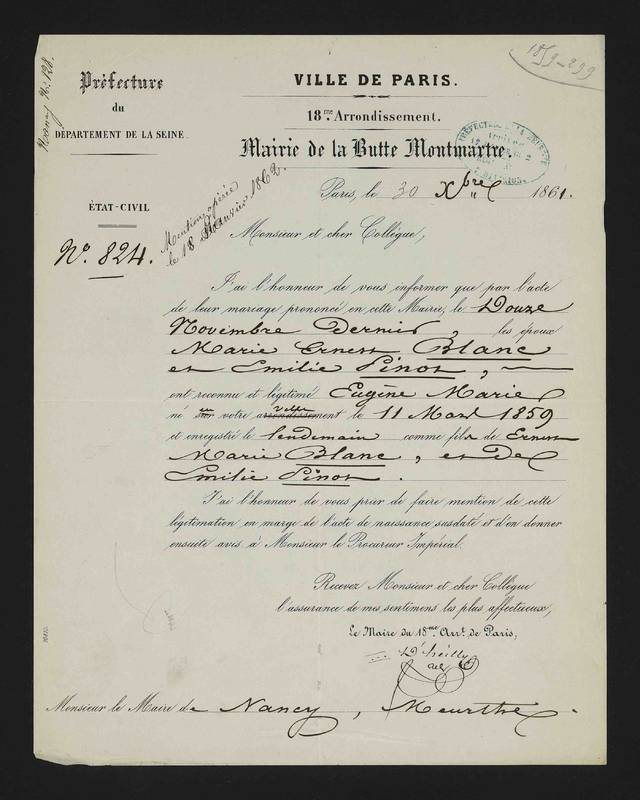 Préfecture
du
DÉPARTEMENT DE LA SEINE.
ÉTAT-CIVIL
N.° 824.
VILLE DE PARIS.
18.me Arrondissement.
Mairie de la Butte Montmartre.
Paris, le 30 Xbre 1861.
Mention opérée
le 18 Janvier 1862.
Monsieur et cher Collègue,
J'ai l'honneur de vous informer que par l'acte
de leur mariage prononcé en cette Mairie, le Douze
Novembre Dernier, les époux
Marie Ernest Blanc
et Emilie Pinot,
ont reconnu et légitimé Eugène Marie
né sur en votre arrondissement ville le 11 Mars 1859
et enregistré le lendemain comme fils de Ernest
Marie Blanc, et de
Emilie Pinot.
J'ai l'honneur de vous prier de faire mention de cette
légitimation en marge de l'acte de naissance susdaté et d'en donner
ensuite avis à Monsieur le Procureur Impérial.
Recevez Monsieur et cher Collègue
l'assurance de mes sentimens les plus affectueux,
Le Maire du 18.me Arr.t de Paris,
Monsieur le Maire de Nancy, Meurthe.